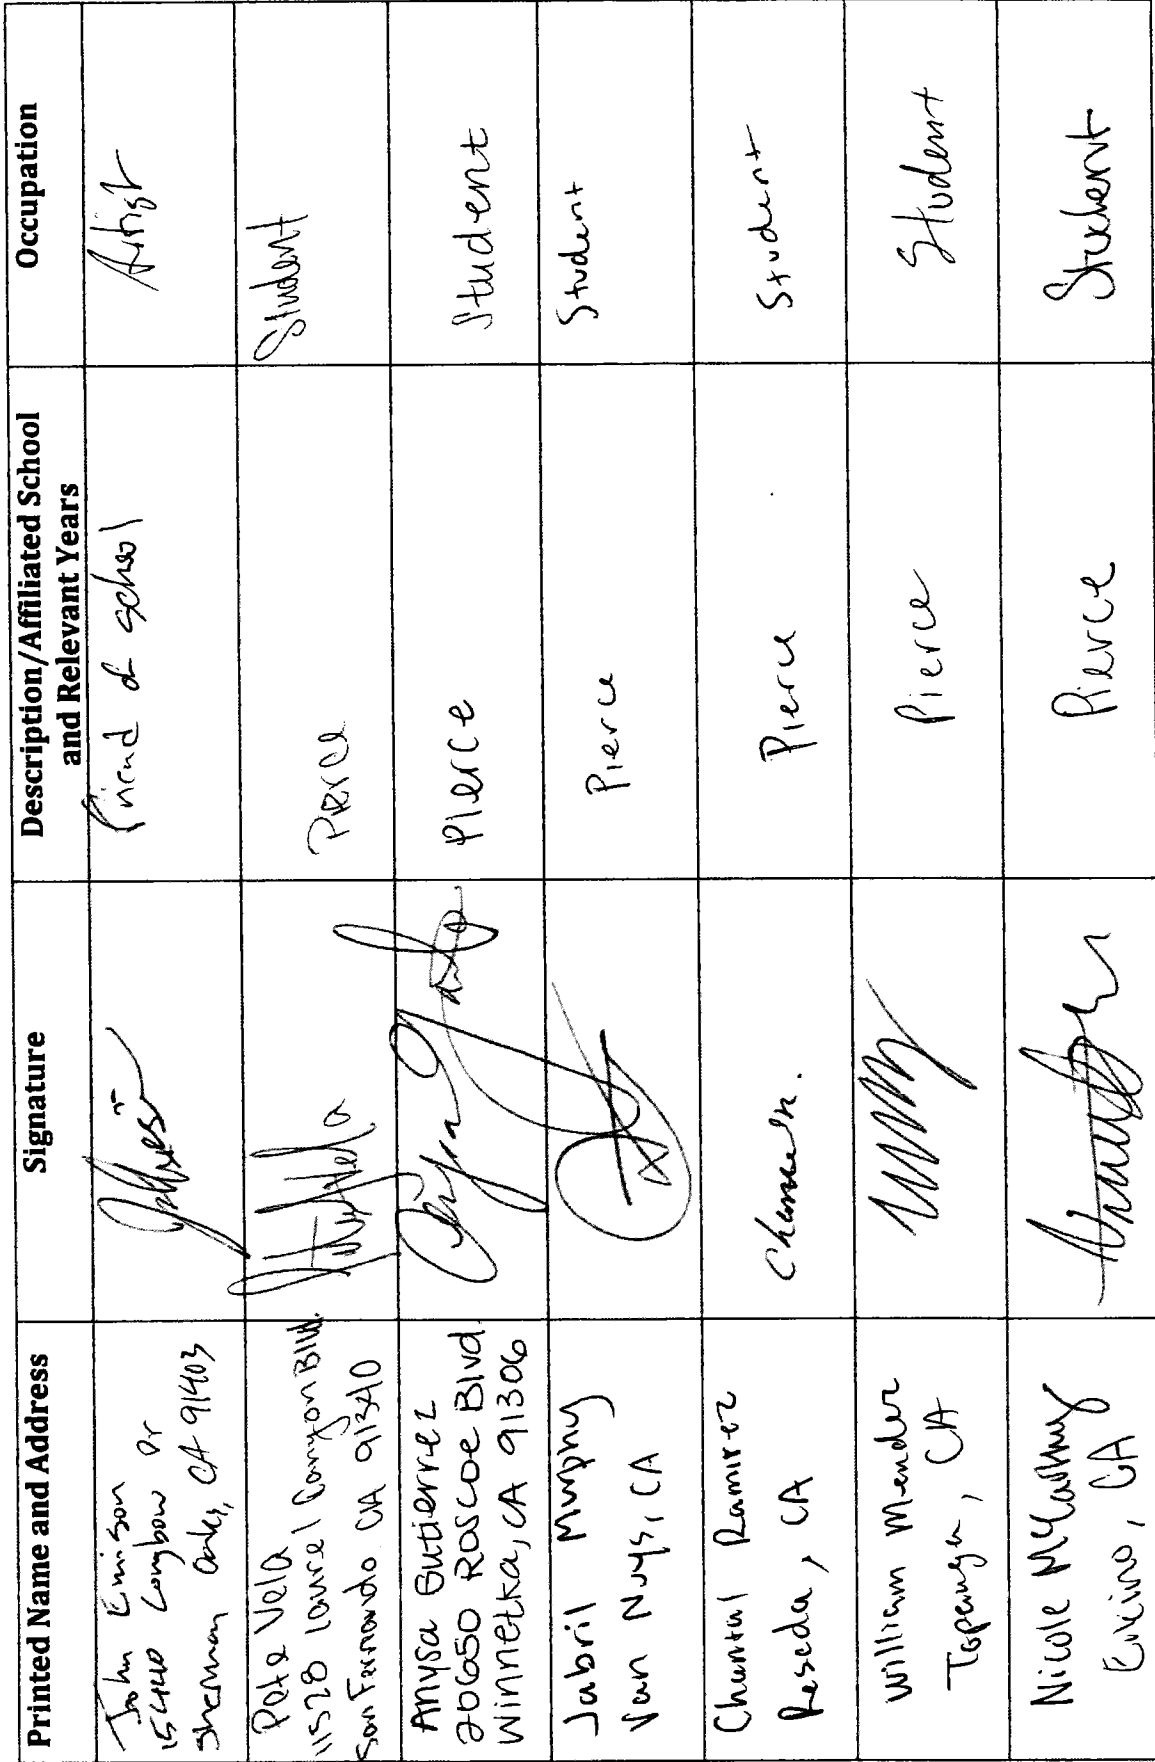 Printed Name and Address
Signature
Description/Affiliated School
and Relevant Years
Occupation
John Emison
15440 Longbow Dr
Sherman Oaks, CA 91403
friend of school
Artist
Pete Vela
11528 Laurel Canyon Blvd.
San Fernando CA 91340
Pierce
Student
Anysa Gutierrez
20650 Roscoe Blvd
Winnetka, CA 91306
Pierce
Student
Jabril Murphy
Van Nuys, CA
Pierce
Student
Chantal Ramirez
Reseda, CA
Pierce
Student
William Mender
Topanga, CA
Pierce
Student
Nicole McCarthy
Encino, CA
Pierce
Student